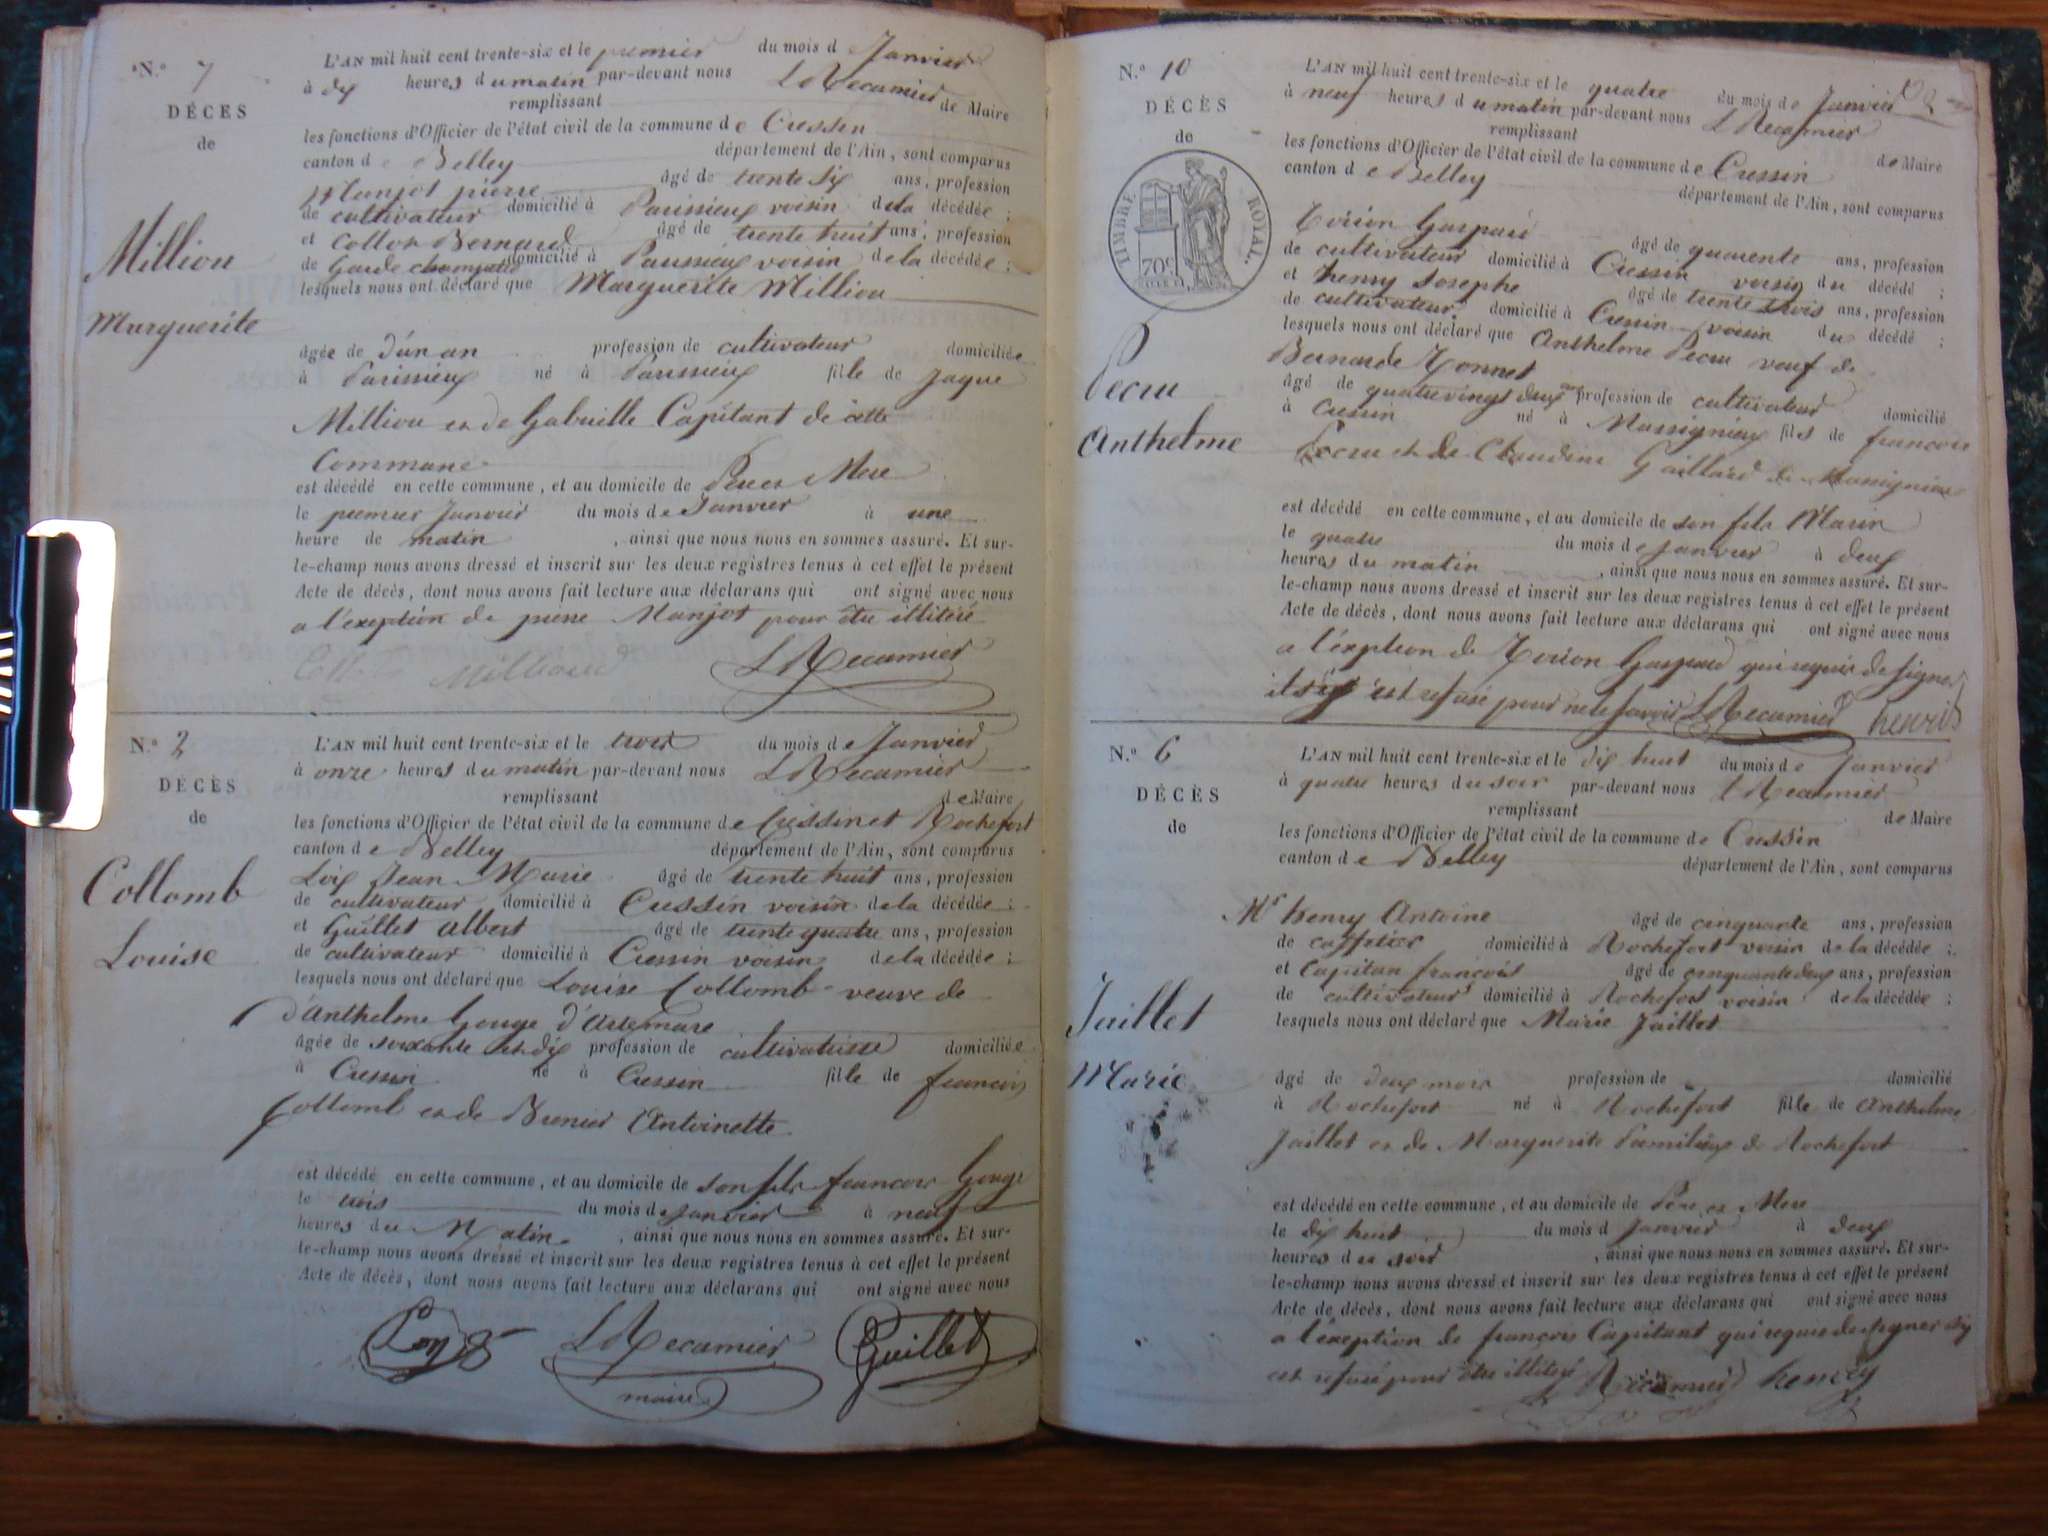 N.° 7
DÉCÈS
de
Milliou
Marguerite
L'AN mil huit cent trente-six et le premier du mois de Janvier
à dix heures du matin par-devant nous L Recamier
remplissant de Maire
les fonctions d'Officier de l'état civil de la commune de Cressin
canton de Belley département de l'Ain, sont comparus
Manjot pierre âgé de trente six ans, profession
de cultivateur domicilié à Parissieux voisin de la décédée;
et Collon Bernard âgé de trente huit ans, profession
de Garde champetre domicilié à Parissieux voisin de la décédée;
lesquels nous ont déclaré que Marguerite Milliou
âgée de d'un an profession de cultivateur domiciliée
à Parissieux né à Parissieux fille de Jaque
Milliou et de Gabrielle Capitant de cette
Commune
est décédé en cette commune, et au domicile de Pere et Mere
le premier Janvier du mois de Janvier à une
heure de matin, ainsi que nous nous en sommes assuré. Et sur-
le-champ nous avons dressé et inscrit sur les deux registres tenus à cet effet le présent
Acte de décès, dont nous avons fait lecture aux déclarans qui ont signé avec nous
a l'exeption de pierre Manjot pour être illitéré
Milliou L Recamier
N.° 2
DÉCÈS
de
Collomb
Louise
L'AN mil huit cent trente-six et le trois du mois de Janvier
à onze heures du matin par-devant nous L Recamier
remplissant de Maire
les fonctions d'Officier de l'état civil de la commune de Cressin et Rochefort
canton de Belley département de l'Ain, sont comparus
Loix Jean Marie âgé de trente huit ans, profession
de cultivateur domicilié à Cressin voisin de la décédée;
et Guillet Albert âgé de trente quatre ans, profession
de cultivateur domicilié à Cressin voisin de la décédée;
lesquels nous ont déclaré que Louise Collomb veuve de
d'Anthelme Gouge d'Artemare
âgée de soixante et dix profession de cultivatrisse domiciliée
à Cressin né à Cressin fille de francois
Collomb et de Brunier Antoinette
est décédé en cette commune, et au domicile de son fils francois Gouge
le trois du mois de Janvier à neuf
heures du Matin, ainsi que nous nous en sommes assuré. Et sur-
le-champ nous avons dressé et inscrit sur les deux registres tenus à cet effet le présent
Acte de décès, dont nous avons fait lecture aux déclarans qui ont signé avec nous
L Recamier Guillet
maire
N.° 10
DÉCÈS
de
TIMBRE ROYAL.
70c
Pecru
Anthelme
L'AN mil huit cent trente-six et le quatre du mois de Janvier
à neuf heures du matin par-devant nous L Recamier
remplissant de Maire
les fonctions d'Officier de l'état civil de la commune de Cressin
canton de Belley département de l'Ain, sont comparus
Gaspard âgé de quarente ans, profession
de cultivateur domicilié à Cressin voisin du décédé;
et henry Josephe âgé de trente trois ans, profession
de cultivateur domicilié à Cressin voisin du décédé;
lesquels nous ont déclaré que Anthelme Pecru veuf de
Bernarde Monnet
âgé de quatrevingt deux ans profession de cultivateur domicilié
à Cressin né à Massignieux fils de francois
Pecru et de Claudine Gaillard de Massignieux
est décédé en cette commune, et au domicile de son fils Marin
le quatre du mois de Janvier à deux
heures du matin, ainsi que nous nous en sommes assuré. Et sur-
le-champ nous avons dressé et inscrit sur les deux registres tenus à cet effet le présent
Acte de décès, dont nous avons fait lecture aux déclarans qui ont signé avec nous
a l'éxeption de Gaspard qui requis de signer
il s'y est refusé pour ne le savoir L Recamier henrid
N.° 6
DÉCÈS
de
Jaillet
Marie
L'AN mil huit cent trente-six et le dix huit du mois de Janvier
à quatre heures du soir par-devant nous L Recamier
remplissant de Maire
les fonctions d'Officier de l'état civil de la commune de Cressin
canton de Belley département de l'Ain, sont comparus
Mr henry Antoine âgé de cinquante ans, profession
de caffetier domicilié à Rochefort voisin de la décédée;
et Capitan françois âgé de cinquante deux ans, profession
de cultivateur domicilié à Rochefort voisin de la décédée;
lesquels nous ont déclaré que Marie Jaillet
âgé de deux mois profession de domicilié
à Rochefort né à Rochefort fille de Anthelme
Jaillet et de Marguerite Pamilieux de Rochefort
est décédé en cette commune, et au domicile de Pere et Mere
le dix huit du mois d Janvier à deux
heures du soir, ainsi que nous nous en sommes assuré. Et sur-
le-champ nous avons dressé et inscrit sur les deux registres tenus à cet effet le présent
Acte de décès, dont nous avons fait lecture aux déclarans qui ont signé avec nous
a l'exeption de francois Capitant qui requis de signer s'y
est refusé pour être illitéré Recamier henrey